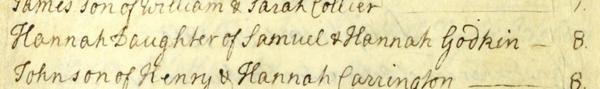 James Son of William & Sarah Collier 7.
Hannah Daughter of Samuel & Hannah Godkin – 8.
John son of Henry & Hannah Carrington — 8.